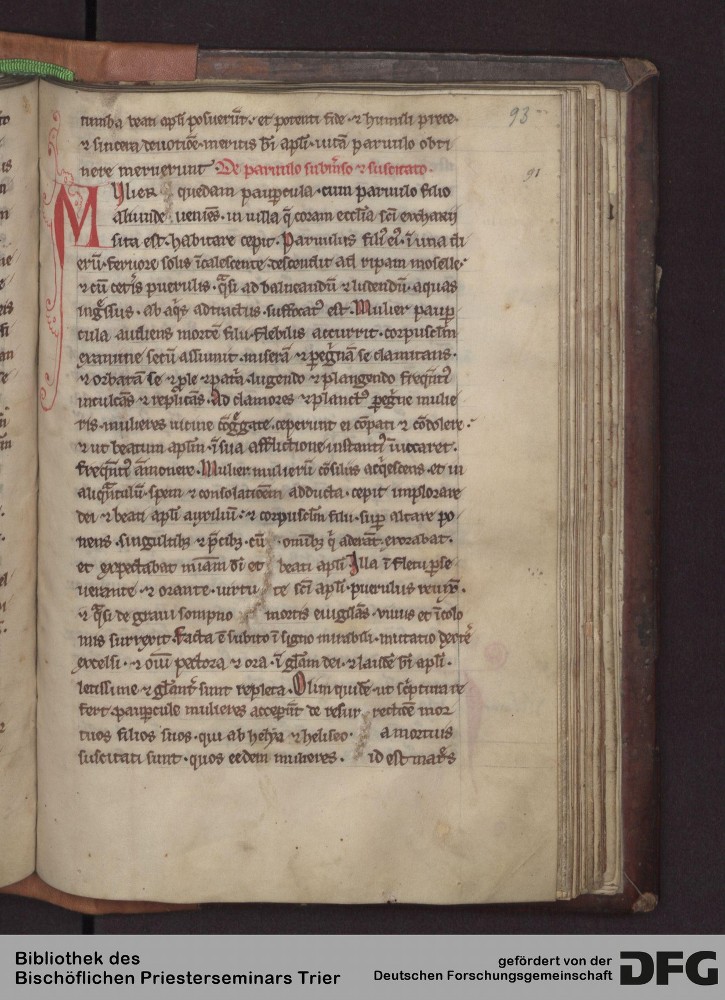 tumba beati apl̄i posuer̄t· et potenti fide· ⁊ humili prece·
⁊ sincera deuotiōe· meritis bī apl̄i· uitā paruulo obti
nere meruerunt· De paruulo submˀso ⁊ suscitato·
Mulier quedam paupercula· cum paruulo filio
aliunde ueniēs· in uilla q̄ coram eccl̄ia sc̄i eucharii
sita est· habitare cepit· Paruulus fili' ei'· ī una di
erū· feruore solis īcalescente· descendit ad ripam moselle·
⁊ cū cet̄is puerulis· q̄si ad balneandū ⁊ ludendū· aquas
ingˢsus· ab aq̄s adtractus· suffocat' est· Mulier paup
cula audiens mortē filii· flebilis accurrit· corpuscl̄m
exanime secū assumit· miserā ⁊ pegˢnā se clamitans·
⁊ orbatam se ⁊ ple ⁊ patˢa· lugendo ⁊ plangendo freq̄nt'
inculcās ⁊ replicās· Ad clamores ⁊ planct' pegˢne mulie
ris· mulieres uicine cōgˢgate· ceperunt ei cōpati ⁊ cōdolere·
⁊ ut beatum apl̄m· ī sua afflictione instant' īuocaret·
freq̄nt' āmonere· Mulier mulierū cōsiliis acq̄escens· et in
aliq̄ntulū· spem ⁊ consolationem adducta· cepit implorare
dei ⁊ beati apl̄i auxiliū· ⁊ corpuscl̄m filii· sup altare po
nens· singultibꝫ ⁊ p̄cibꝫ· cū omībꝫ q̄ aderāt· exorabat·
et expectabat mīam dī et beati apl̄i· Illa ī fletu pse
uerante ⁊ orante· uirtute sc̄i apl̄i· puerulus reuixˀ·
⁊ q̄si de graui sompno mortis euigilās· uiuus et īcolo
mis surrexit· Facta ē subito ī signo mirabili· mutatio dextˢe
excelsi· ⁊ oīū pectora ⁊ ora· ī gl̄am dei· ⁊ laudē bī apl̄i·
letissime ⁊ gl̄ant' sunt repleta· Olim quidē· ut sc̄ptura re
fert· paupcule mulieres acceper̄t de resurrectiōe mor
tuos filios suos· qui ab helya ⁊ heliseo· a mortuis
suscitati sunt· quos eedem mulieres· id est matˢs
93
91
Bibliothek des
Bischöflichen Priesterseminars Trier
gefördert von der
Deutschen Forschungsgemeinschaft
DFG